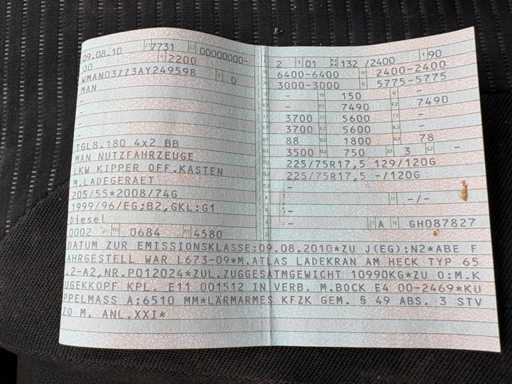 09.08.10 7731 00000000-
00 12200
WMAN03773AY249598 0
MAN
-
-
-
TGL8.180 4x2 BB
MAN NUTZFAHRZEUGE
LKW KIPPER OFF.KASTEN
M.LADEGERAET
205/55*2008/74G
1999/96/EG;B2,GKL:G1
Diesel
0002 0684 4580
2 01 132/2400 90
6400-6400 2400-2400
3000-3000 5775-5775
- 150 -
- 7490 7490
3700 5600 -
3700 5600 -
88 1800 78
3500 750 3 -
225/75R17,5 129/120G
225/75R17,5 -/120G
-
- -/-
-
- A GH087827
DATUM ZUR EMISSIONSKLASSE:09.08.2010*ZU J(EG):N2*ABE F
AHRGESTELL WAR L673-09*M.ATLAS LADEKRAN AM HECK TYP 65
.2-A2,NR.P012024*ZUL.ZUGGESATMGEWICHT 10990KG*ZU O:M.K
UGEKKOPF KPL. E11 001512 IN VERB. M.BOCK E4 00-2469*KU
PPELMASS A:6510 MM*LÄRMARMES KFZK GEM. § 49 ABS. 3 STV
ZO M. ANL.XXI*